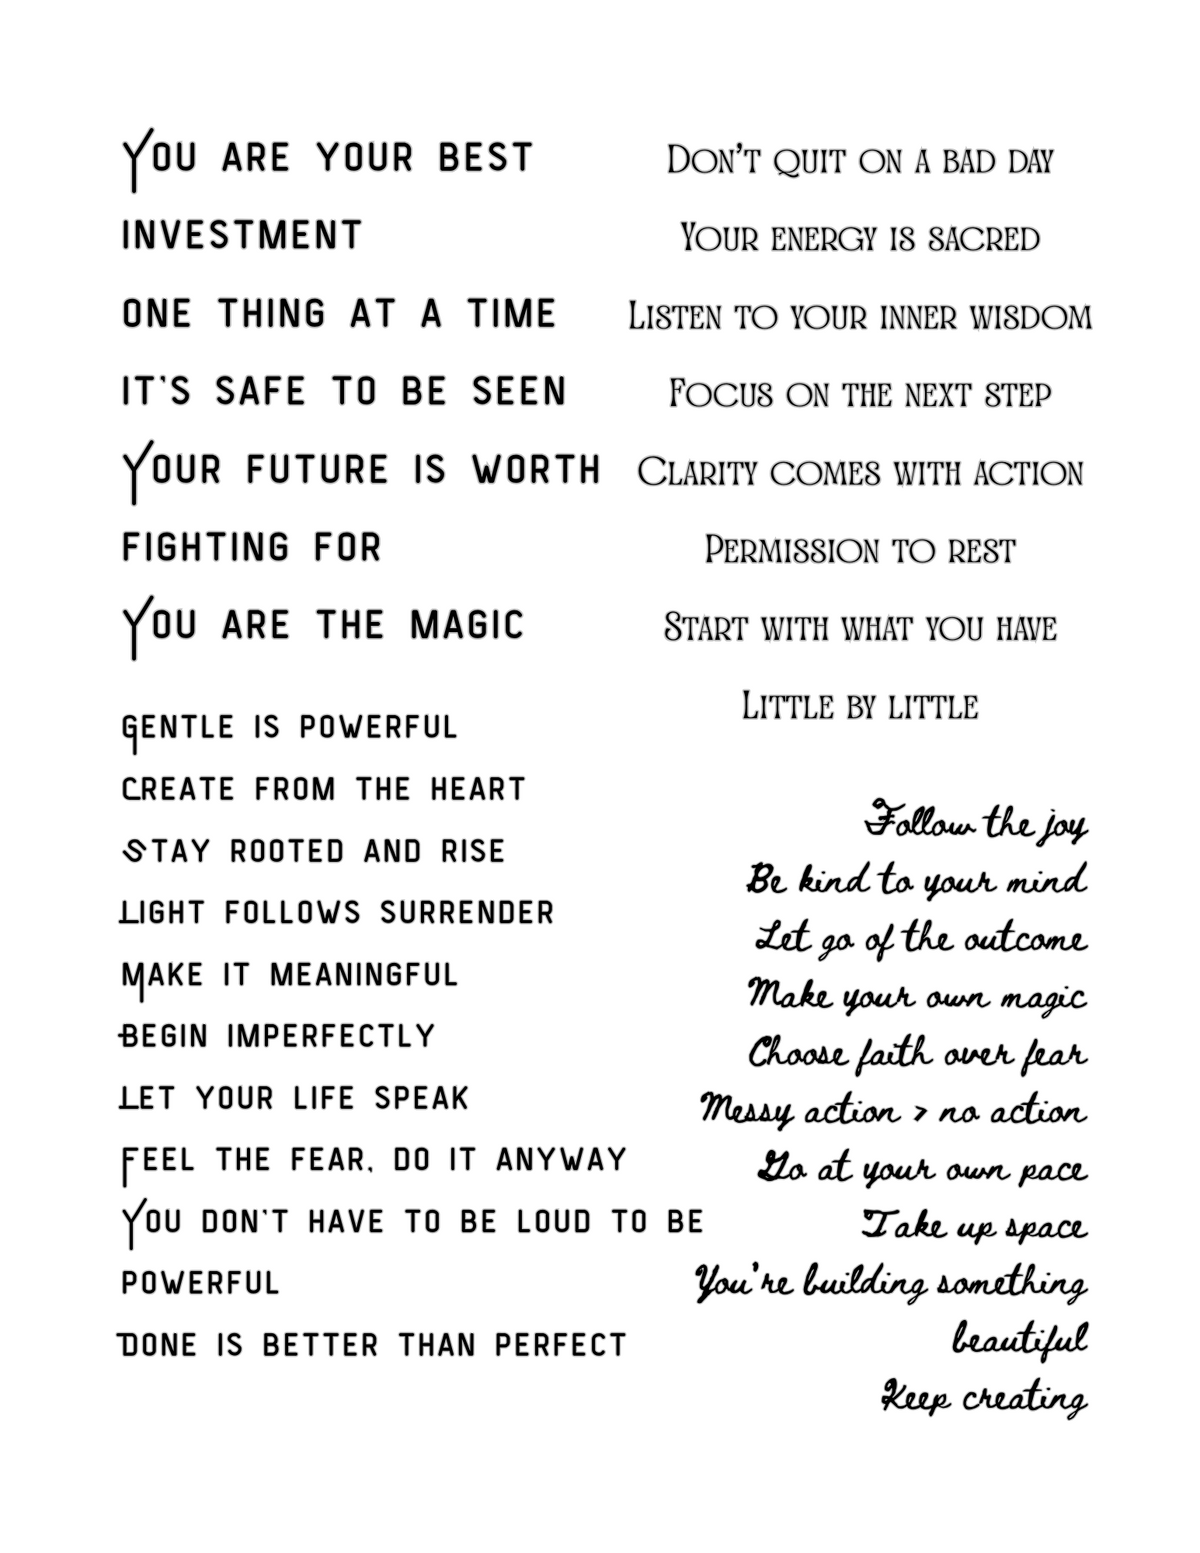 You are your best
investment
one thing at a time
it's safe to be seen
Your future is worth
fighting for
You are the magic
Gentle is powerful
Create from the heart
Stay rooted and rise
Light follows surrender
Make it meaningful
Begin imperfectly
Let your life speak
Feel the fear, do it anyway
You don't have to be loud to be
powerful
Done is better than perfect
Don't quit on a bad day
Your energy is sacred
Listen to your inner wisdom
Focus on the next step
Clarity comes with action
Permission to rest
Start with what you have
Little by little
Follow the joy
Be kind to your mind
Let go of the outcome
Make your own magic
Choose faith over fear
Messy action > no action
Go at your own pace
Take up space
You're building something
beautiful
Keep creating